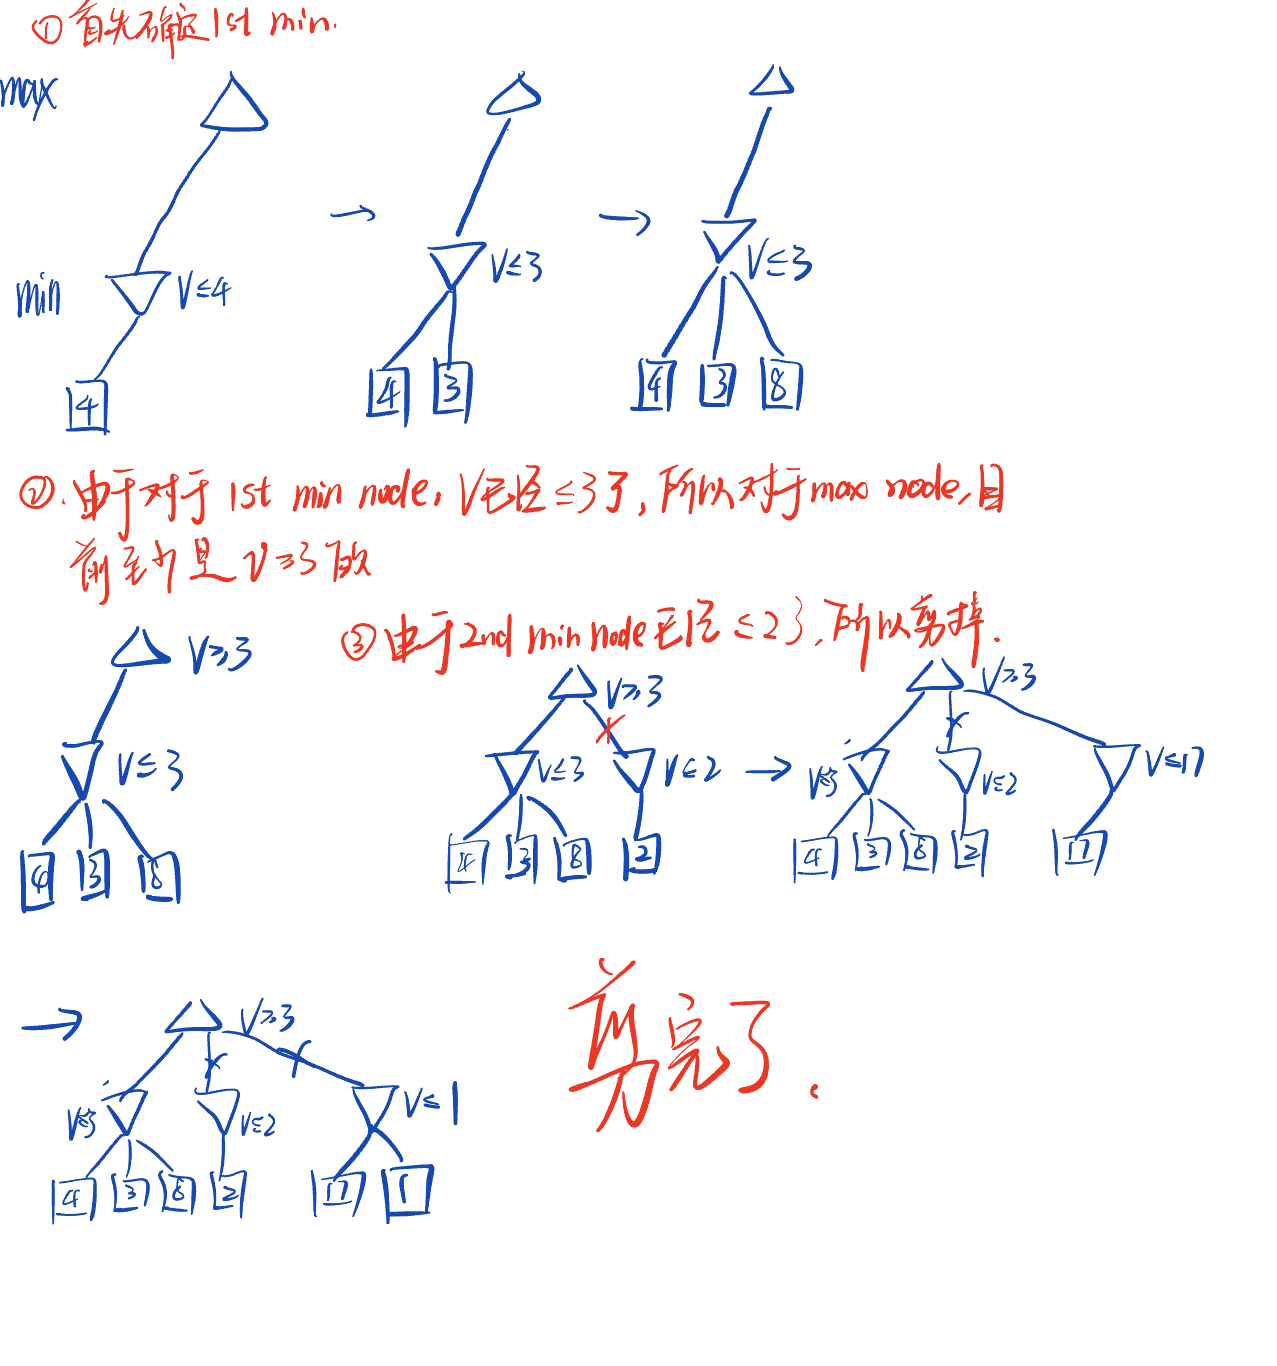 ① 首先确定 1st min.
max
min
V≤4
4
V≤3
4 3
V≤3
4 3 8
②. 由于对于 1st min node, V已经≤3了, 所以对于max node, 目
前至少是 V≥3 的
③ 由于 2nd min node 已经 ≤2了, 所以剪掉.
V≥3
V≤3
4 3 8
V≥3
V≤3 V≤2
4 3 8 2
V≥3
V≤3 V≤2 V≤17
4 3 8 2 17
V≥3
V≤3 V≤2 V≤1
4 3 8 2 17 1
剪完了.